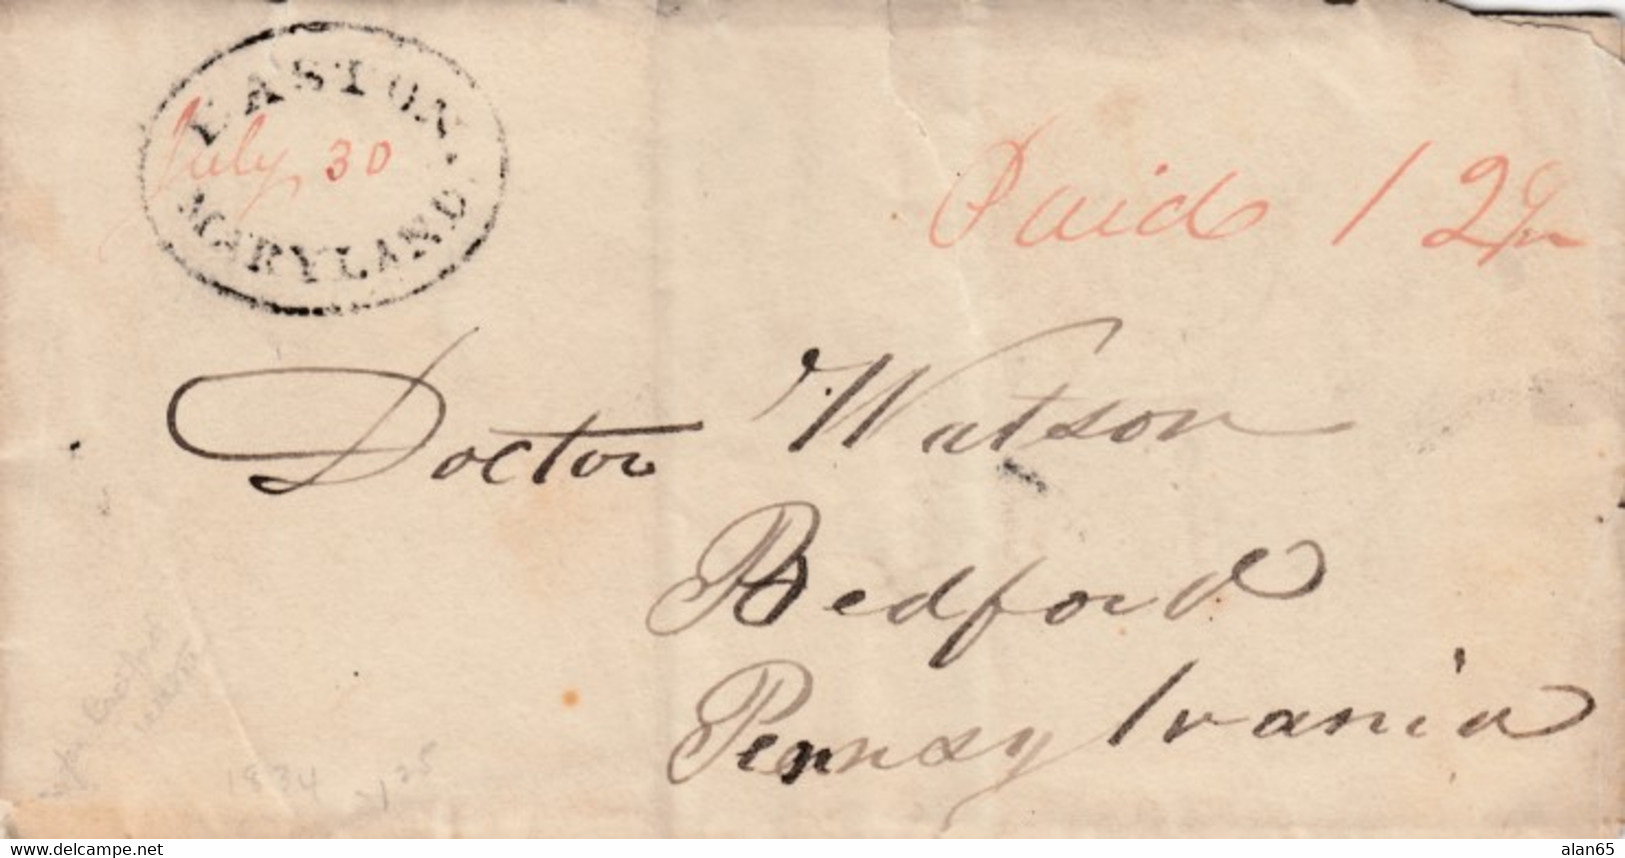 EASTON.
July 30
MARYLAND.
Paid 12½
Doctor Watson
Bedford
Pennsylvania
1834
alan65